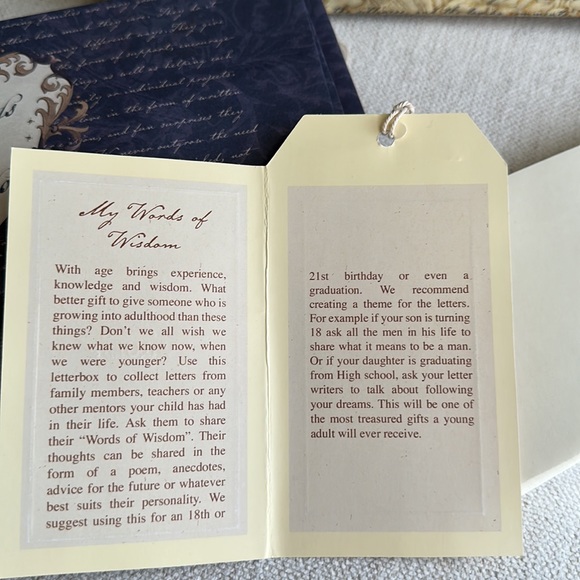 My Words of
Wisdom
With age brings experience,
knowledge and wisdom. What
better gift to give someone who is
growing into adulthood than these
things? Don't we all wish we
knew what we know now, when
we were younger? Use this
letterbox to collect letters from
family members, teachers or any
other mentors your child has had
in their life. Ask them to share
their "Words of Wisdom". Their
thoughts can be shared in the
form of a poem, anecdotes,
advice for the future or whatever
best suits their personality. We
suggest using this for an 18th or
21st birthday or even a
graduation. We recommend
creating a theme for the letters.
For example if your son is turning
18 ask all the men in his life to
share what it means to be a man.
Or if your daughter is graduating
from High school, ask your letter
writers to talk about following
your dreams. This will be one of
the most treasured gifts a young
adult will ever receive.